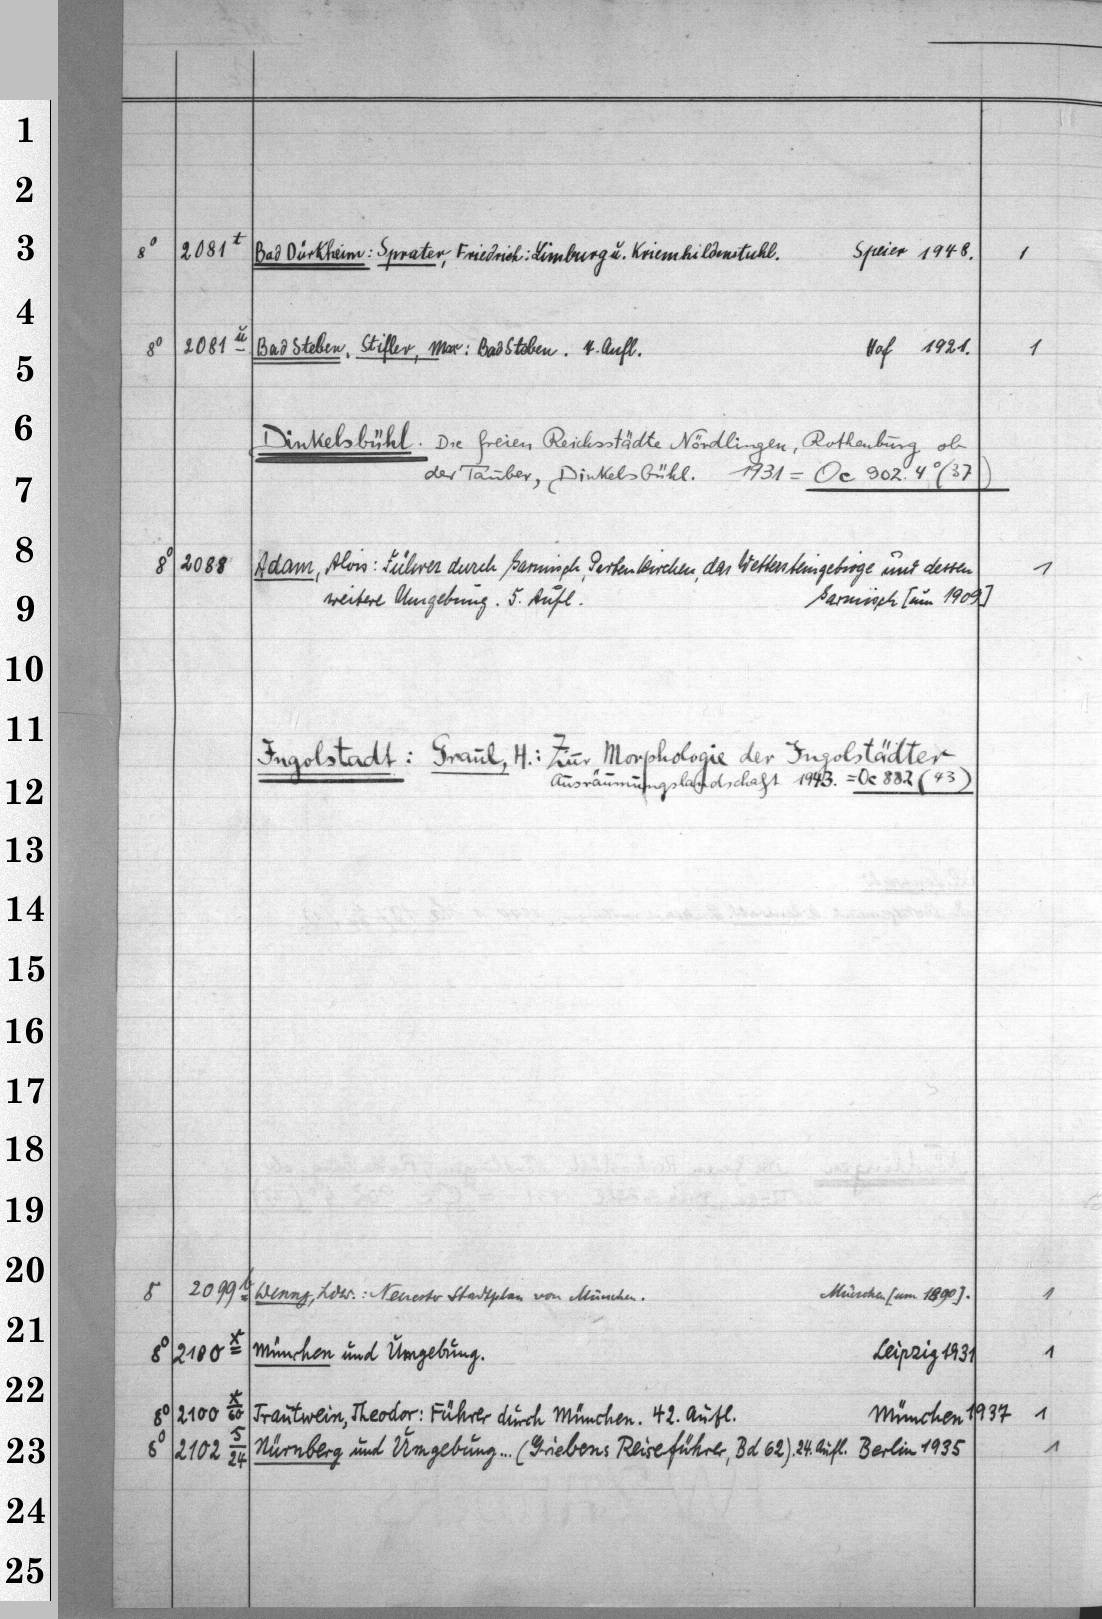 1
2
3
8° 2081 t Bad Dürkheim: Sprater, Friedrich: Limburg u. Kriemhildenstuhl. Speier 1948. 1
4
8° 2081 u Bad Steben. Stifler, Max: Bad Steben. 4. Aufl. Hof 1921. 1
5
6
Dinkelsbühl. Die freien Reichsstädte Nördlingen, Rothenburg ob
der Tauber, Dinkelsbühl. 1931 = Oc 902. 4° (37)
7
8
8° 2088 Adam, Alois: Führer durch Garmisch, Partenkirchen, das Wettersteingebirge und dessen 1
weitere Umgebung. 5. Aufl. Garmisch [um 1909]
9
10
11
Ingolstadt: Graul, H.: Zur Morphologie der Ingolstädter
Ausräumungslandschaft 1943. = Oc 882 (43)
12
13
14
15
16
17
18
19
20
8 2099 b Wenng, Ldw.: Neuester Stadtplan von München. München [um 1890]. 1
21
8° 2100 x München und Umgebung. Leipzig 1931 1
22
8° 2100 x/60 Trautwein, Theodor: Führer durch München. 42. Aufl. München 1937 1
23
8° 2102 5/24 Nürnberg und Umgebung... (Griebens Reiseführer, Bd 62). 24. Aufl. Berlin 1935 1
24
25